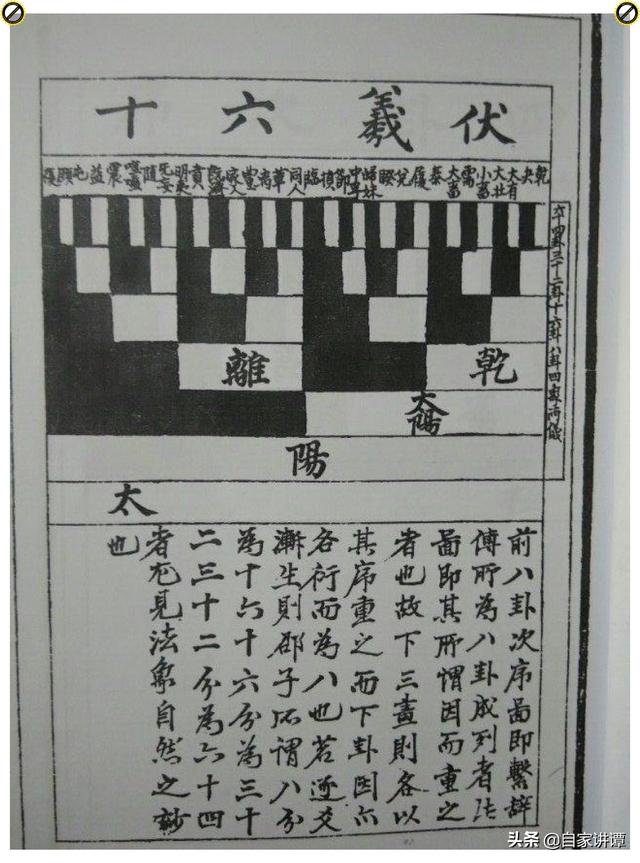 伏羲六十
乾 夬 大有 大壯 小畜 需 大畜 泰 履 兌 睽 歸妹 中孚 節 損 臨 同人 革 離 豐 家人 既濟 賁 明夷 无妄 隨 噬嗑 震 益 屯 頤 復
六十四卦三十二卦十六卦八卦四象兩儀
乾 離
太陽
陽
太
前八卦次序圖即繫辭
傳所為八卦成列者此
圖即其所謂因而重之
者也故下三畫則各以
其序重之而下卦因亦
各衍而為八也若逐爻
漸生則邵子所謂八分
為十六十六分為三十
二三十二分為六十四
者尤見法象自然之妙
也
头条 @自家讲谭